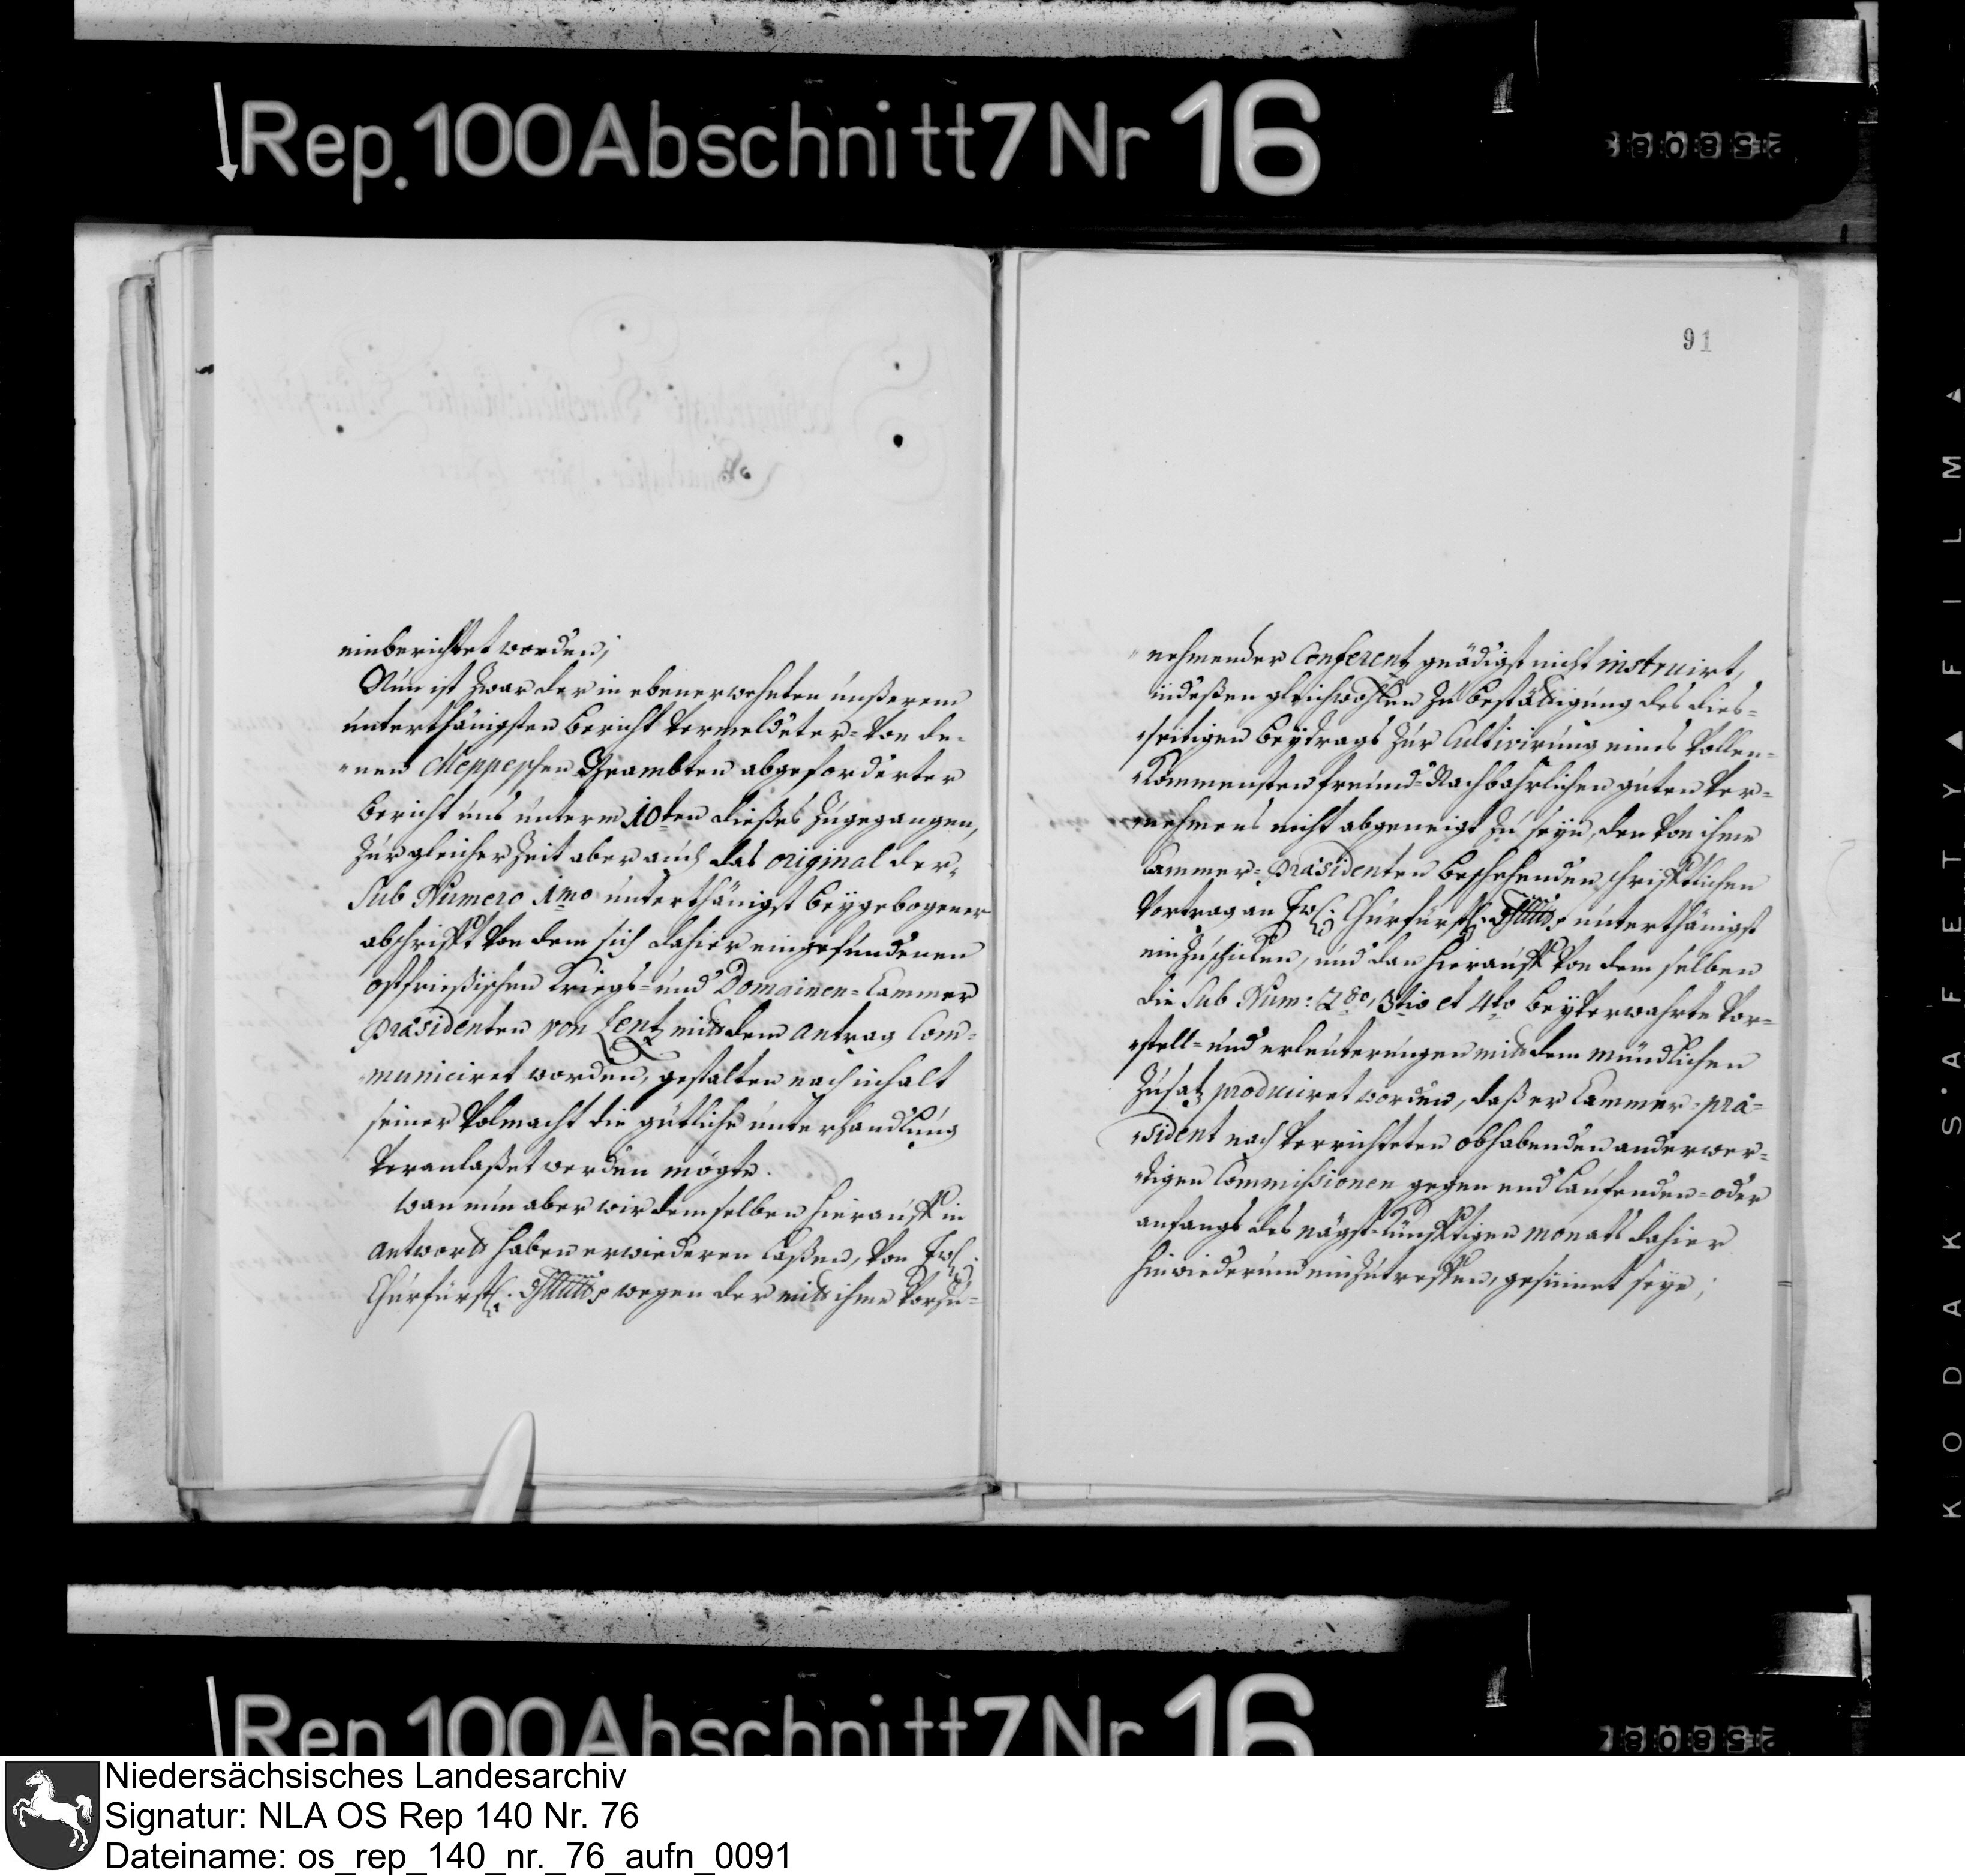 Rep. 100 Abschnitt 7 Nr 16
91
einberichtet worden;
Nun ist zwar der in ebenerwehnten unßerem
unterthänigsten bericht vermeldeter- von de-
„nen Meppeschen Beambten abgeforderter
bericht uns unterm 10ten dießes zugegangen,
zur gleicher zeit aber auch das original der,
Sub Numero 1mo unterthänigst beygebogener
abschrifft von dem sich dahier eingefundenen
ostfrießischen Kriegs- und Domainen-Cammer
præsidenten von Lentz mit dem antrag Com-
municiret worden, gestalten nach inhalt
seiner volmacht die gütliche unterhandlung
veranlaßet werden mögte.
Wan nun aber wir demselben hierauff in
antwort haben erwiederen laßen, von Ew:
Churfürstl. wegen der mit ihme vorzu-
„nehmender Conferentz gnädigst nicht instruirt,
indeßen gleichwohlen zu bestättigung des dies-
„seitigen beytrags zur Cultivirung eines vollen-
„kommensten freund-Nachbahrlichen guten ver-
„nehmens nicht abgeneigt zu seyn, den von ihme
Cammer-præsidenten beschehenden schrifftlichen
Vortrag an Ew: Churfürstl. unterthänigst
einzuschicken, und dan hierauff von dem selben
die Sub Num: 2do, 3tio et 4to beyverwahrte vor-
„stell- und erleuterungen mit dem mündlichen
Zusatz produciret worden, daß er Cammer-præ-
„sident nach verrichteten obhabenden anderwer-
„tigen Commissionen gegen end laufenden- oder
anfangs des nägst-künfftigen monats dahier
hinwiederum einzutreffen, gesinnet seye;
KODAK SAFETY FILM
Rep. 100 Abschnitt 7 Nr 16
Niedersächsisches Landesarchiv
Signatur: NLA OS Rep 140 Nr. 76
Dateiname: os_rep_140_nr._76_aufn_0091